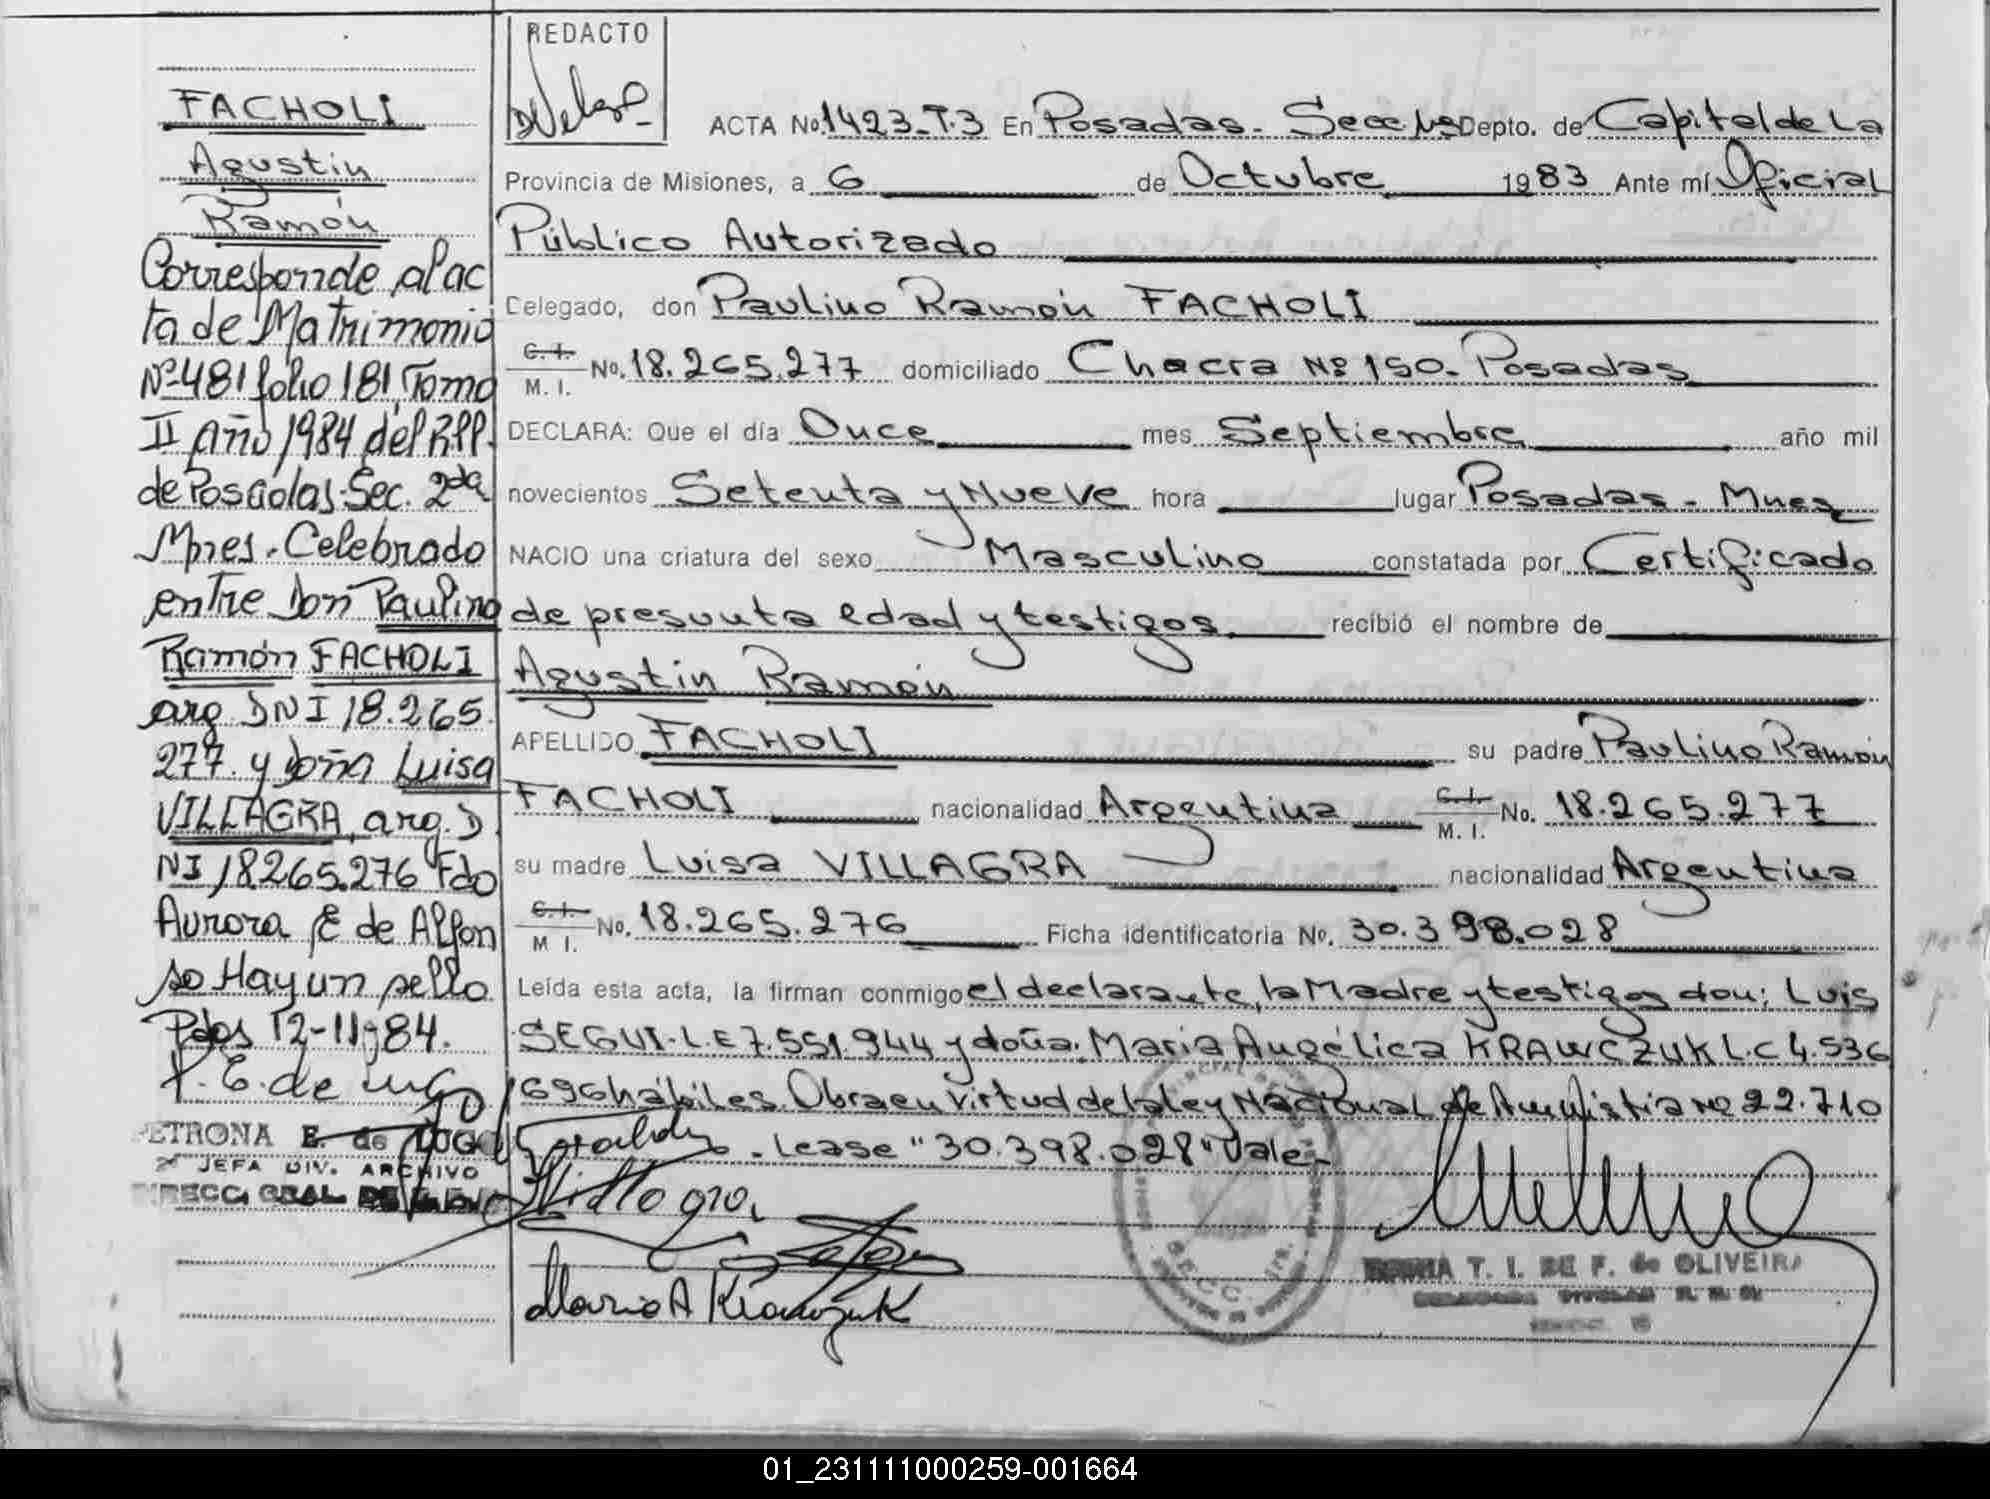 FACHOLI
Agustín
Ramón
Corresponde al ac
ta de Matrimonio
Nº 481 folio 181 Tomo
II Año 1984 del R.P.P.
de Posadas-Sec. 2da
Mnes. Celebrado
entre Don Paulino
Ramón FACHOLI
arg. DNI 18.265.
277. y doña Luisa
VILLAGRA, arg. D
NI 18.265.276 Fdo
Aurora E de Alfon
so Hay un sello
Pdas 12-11-84.
P. E. de Lugo
PETRONA E. de LUGO
JEFA DIV. ARCHIVO
DIRECC. GRAL. DE
REDACTO
ACTA No. 1423-T.3 En Posadas - Secc. Depto. de Capital de La
Provincia de Misiones, a 6 de Octubre 1983 Ante mí Oficial
Público Autorizado
Delegado, don Paulino Ramón FACHOLI
C.I. M. I. No. 18.265.277 domiciliado Chacra Nº 150. Posadas
DECLARA: Que el día Once mes Septiembre año mil
novecientos Setenta y Nueve hora lugar Posadas - Mnes
NACIO una criatura del sexo Masculino constatada por Certificado
de presunta edad y testigos recibió el nombre de
Agustín Ramón
APELLIDO FACHOLI su padre Paulino Ramón
FACHOLI nacionalidad Argentina C.I. M. I. No. 18.265.277
su madre Luisa VILLAGRA nacionalidad Argentina
C.I. M I. No. 18.265.276 Ficha identificatoria No. 30.398.028
Leída esta acta, la firman conmigo el declarante, la Madre y testigos don: Luis
SEGUI-L.E 7.551.944 y doña María Angélica KRAWCZUK L.C 4.536
696 hábiles. Obra en virtud de la ley Nacional de Amnistia Nº 22.710
. Lease "30.398.028" Vale-
Villagra
Maria A Krawczuk
T. I. DE F. de OLIVEIRA
01_231111000259-001664